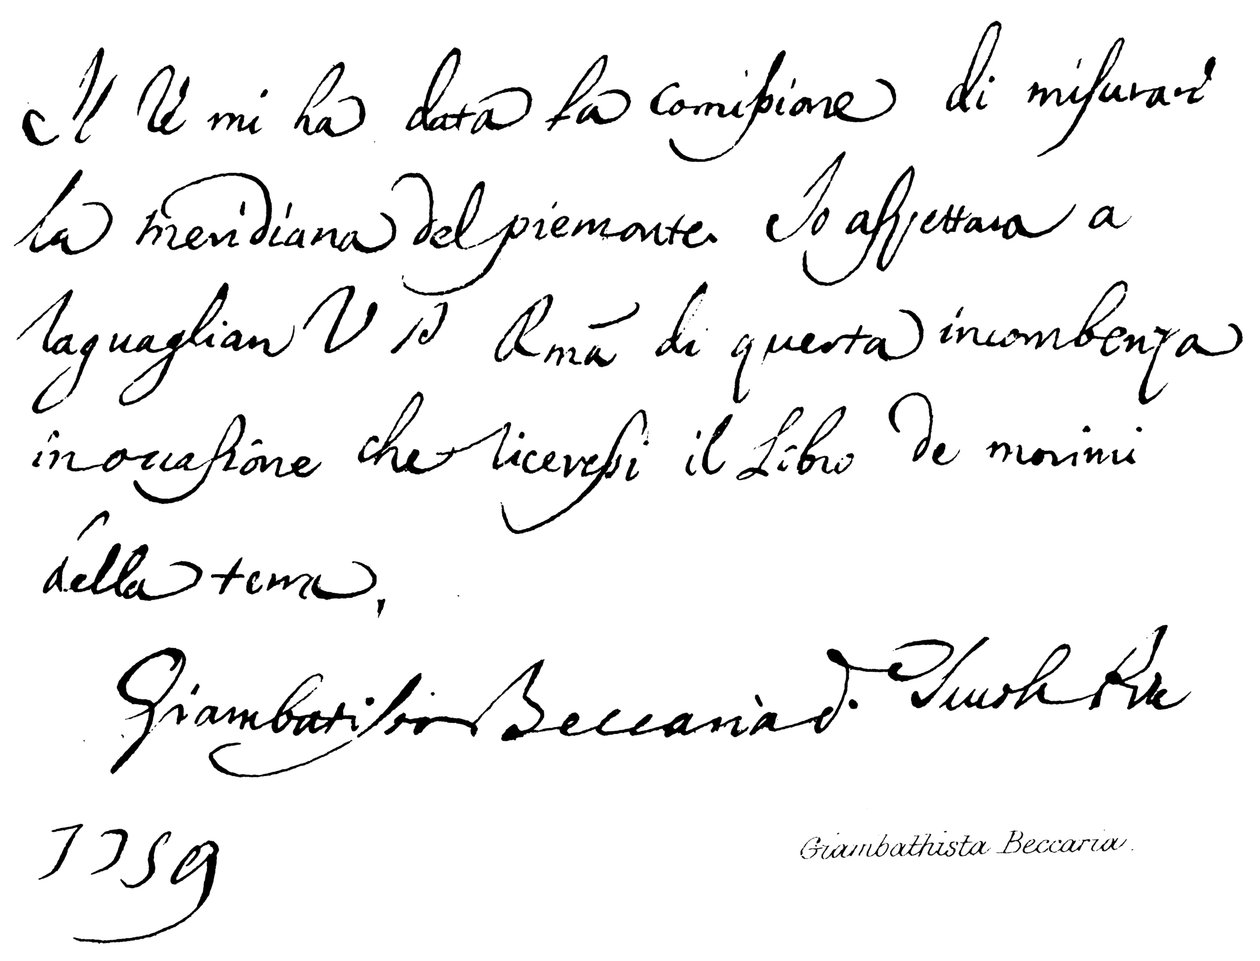 Il Re mi ha data la comissione di misurare
la meridiana del piemonte. Io aspettava a
raguagliar V P Rma di questa incombenza
in occasione che ricevessi il Libro de morimi
della terra,
Giambatista Beccaria d. Scuole Pie
1759
Giambathista Beccaria.